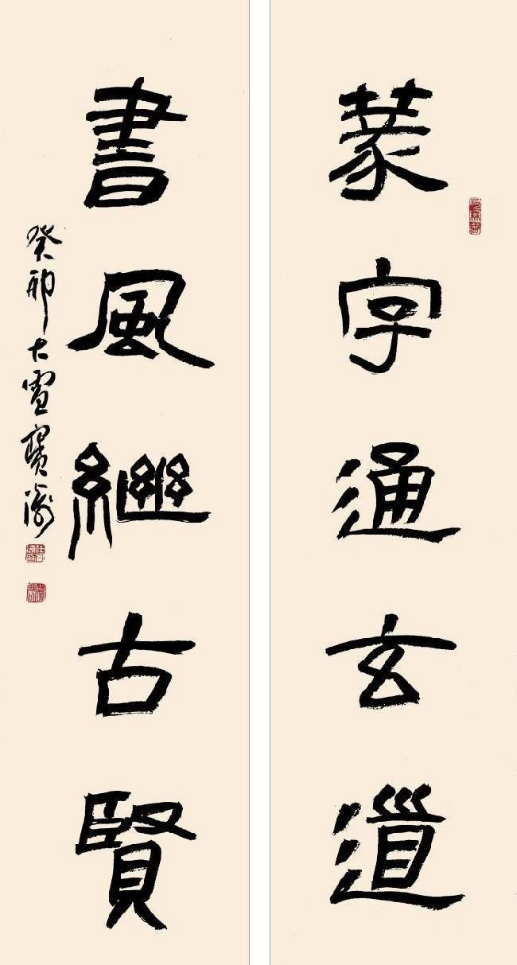 篆字通玄道
書風繼古賢
癸卯大雪寶